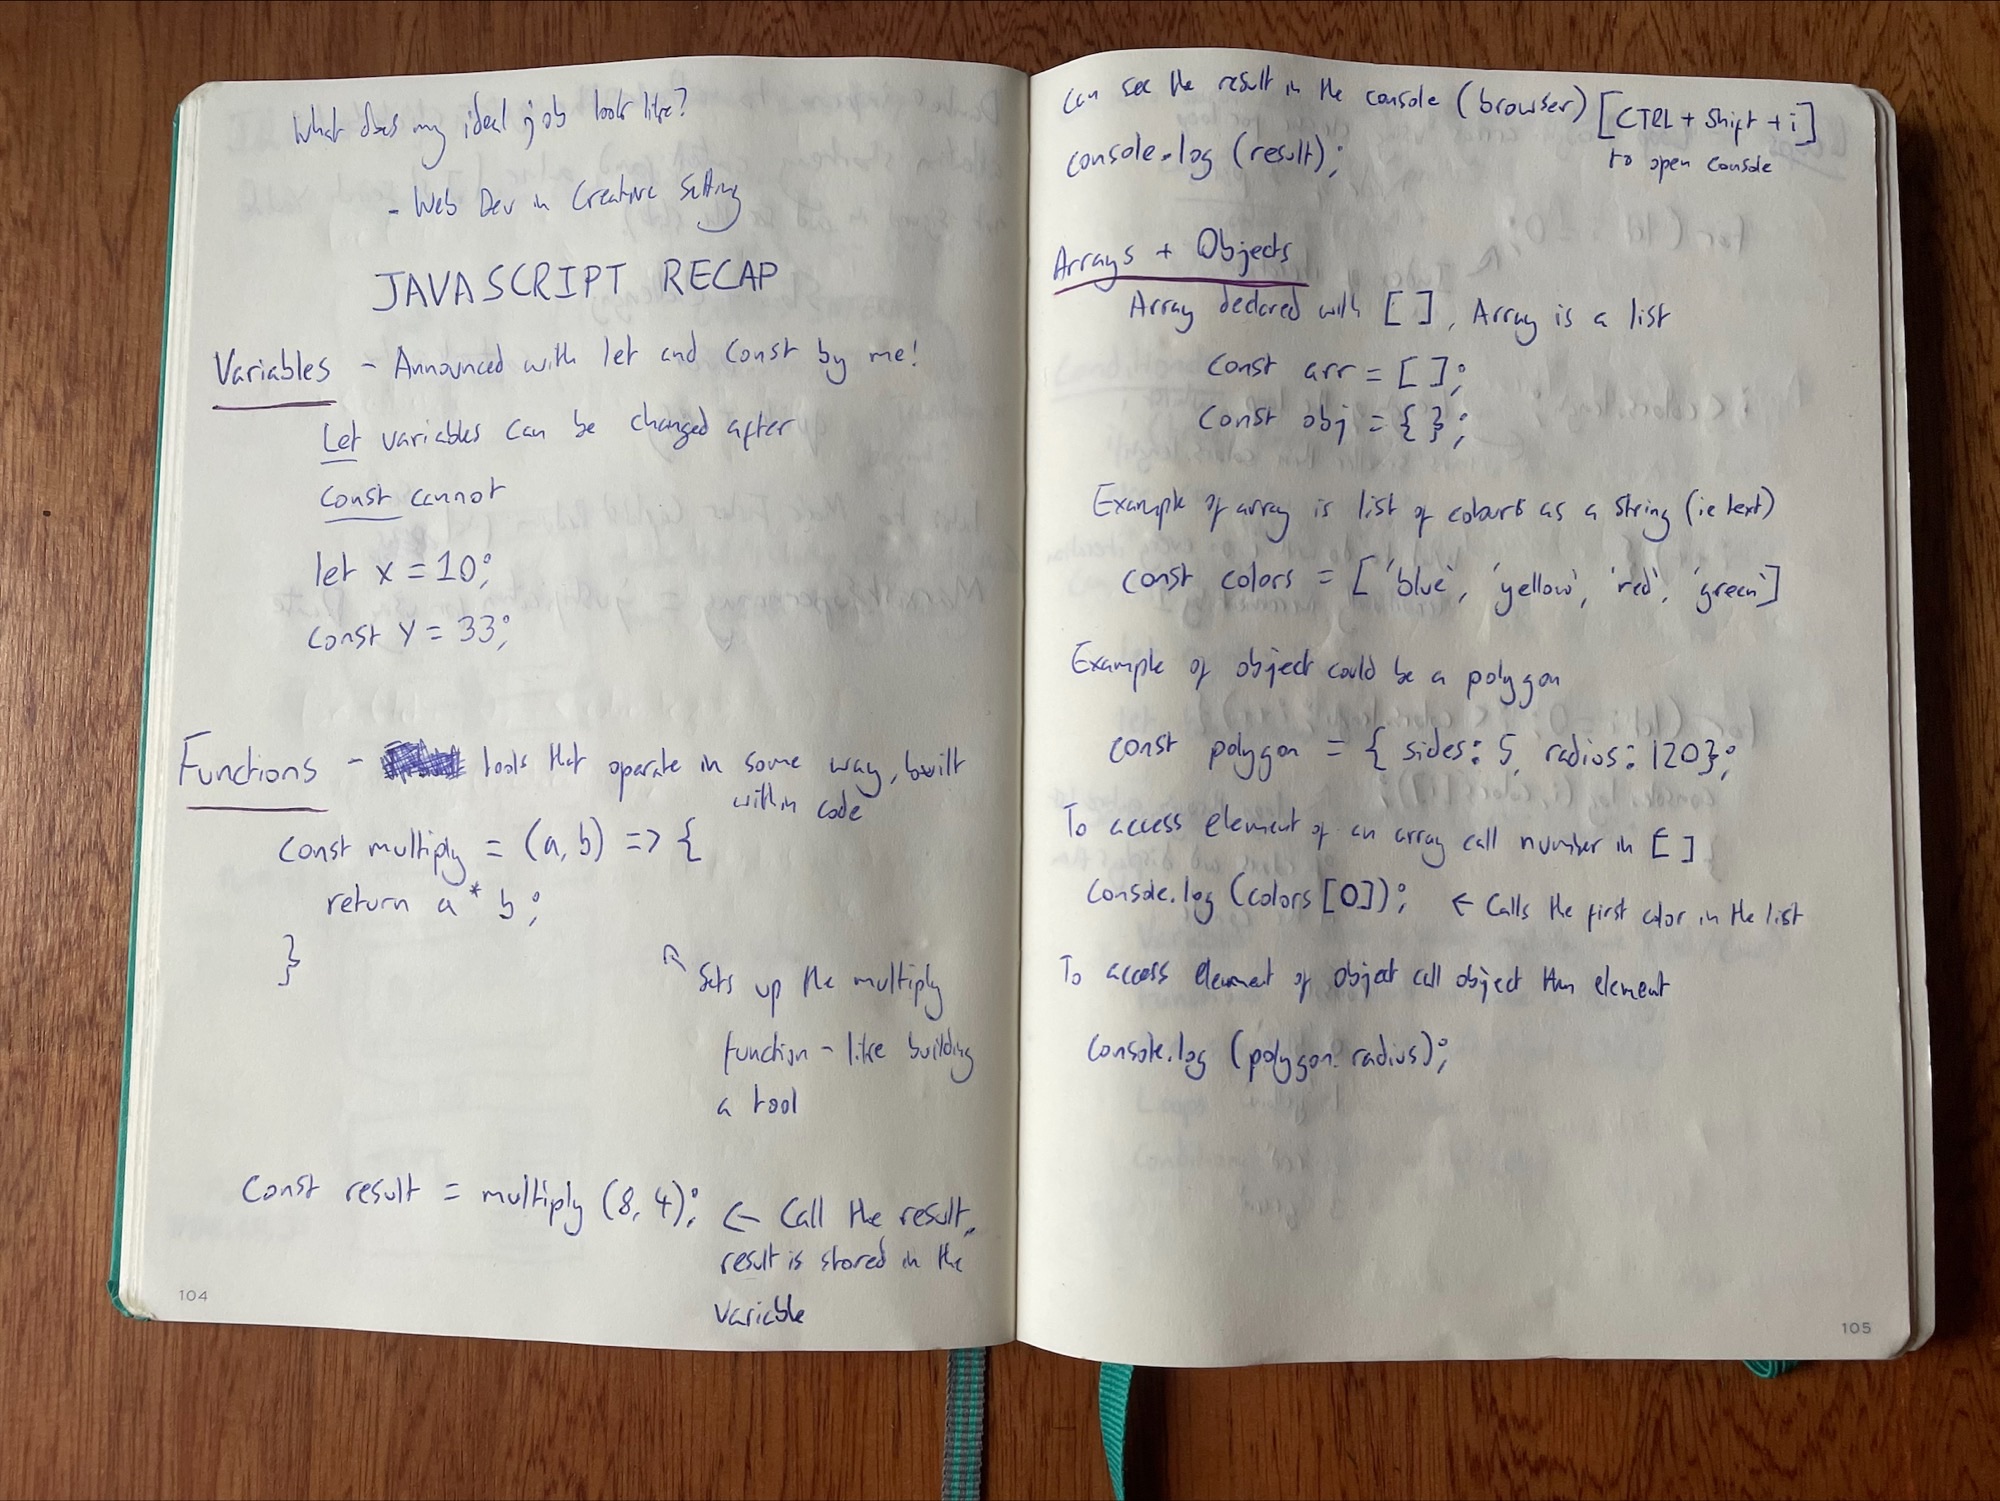 What does my ideal job look like?
- Web Dev in Creative Setting
JAVASCRIPT RECAP
Variables - Announced with let and const by me!
Let variables can be changed after
const cannot
let x = 10;
const y = 33;
Functions - tools that operate in some way, built
within code
const multiply = (a, b) => {
return a * b;
}
↖ Sets up the multiply
function - like building
a tool
const result = multiply (8, 4); ← Call the result,
result is stored in the
variable
104
Can see the result in the console (browser) [CTRL + Shift + i]
to open console
console.log (result);
Arrays + Objects
Array declared with [ ], Array is a list
const arr = [ ];
const obj = { };
Example of array is list of colours as a string (ie text)
const colors = ['blue', 'yellow', 'red', 'green']
Example of object could be a polygon
const polygon = { sides: 5, radius: 120};
To access element of an array call number in [ ]
console.log (colors [0]); ← Calls the first color in the list
To access element of object call object then element
console.log (polygon.radius);
105